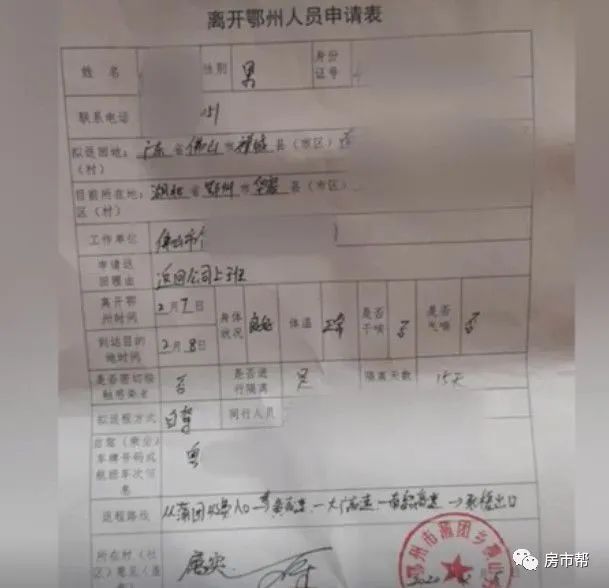 离开鄂州人员申请表
姓名 性别 男 身份证号
联系电话
拟返回地： 广东省佛山市禅城县（市区）
（村）
目前所在地： 湖北省鄂州市华容县（市区）
区（村）
工作单位 佛山市
申请返回理由 返回公司上班
离开鄂州时间 2月7日 身体状况 良好 体温 正常 是否干咳 否 是否气喘 否
到达目的地时间 2月8日
是否密切接触感染者 否 是否进行隔离 隔离天数 15天
拟返程方式 自驾 同行人员
自驾（乘坐）车牌号码或航班车次信息 粤
返程路线 从蒲团 入口 高速一大广高速一 高速 出口
所在村（社区）意见（盖章） 属实
鄂州市蒲团乡横山
房市帮